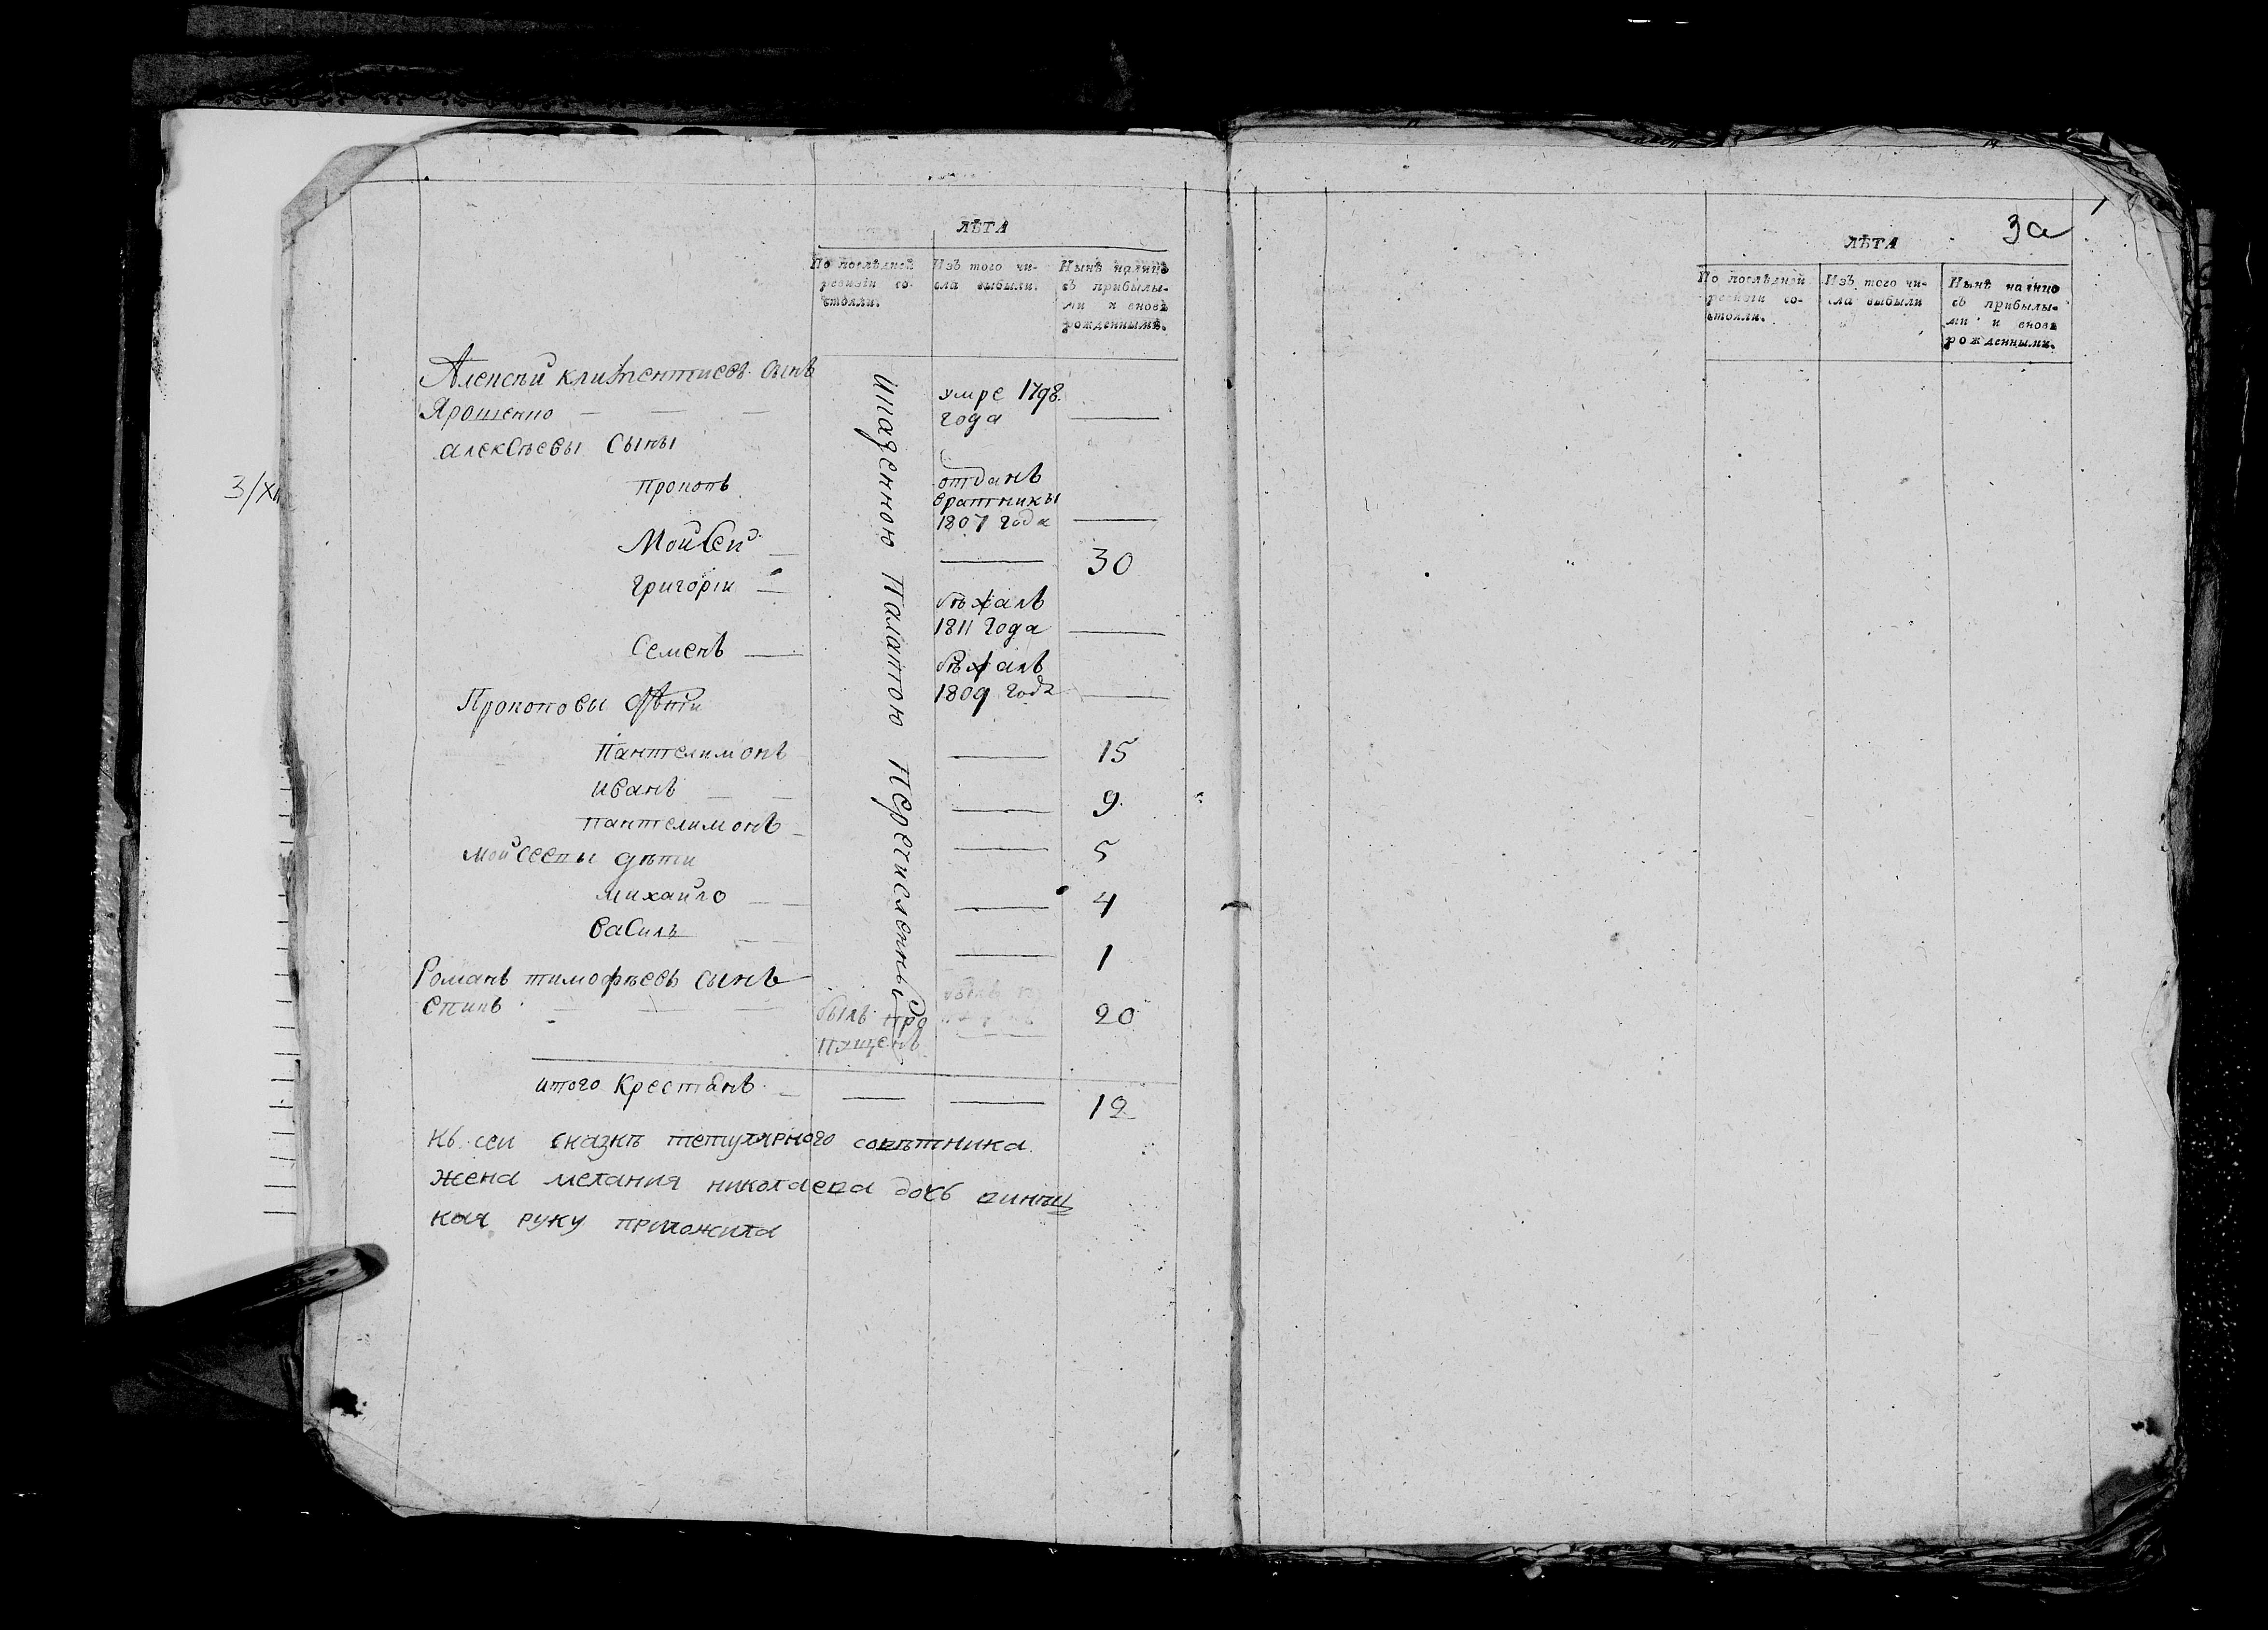 ЛѢТА
По послѣдней ревизіи состояли.
Изъ того числа выбыли.
Нынѣ налицо съ прибылыми и вновь рожденными.
Алексѣй климентиевъ сынъ
Ярошенко
умре 1798
года
алексѣевы сыны
прокопъ
отданъ
вратники
1807 года
Мойсей
30
григорій
бѣжалъ
1811 года
Семенъ
бѣжалъ
1809 года
Прокоповы дѣти
пантелимонъ
15
иванъ
9
пантелимонъ
5
мойсеевы дѣти
михайло
4
василь
1
казенною Палатою Перечисленны
Романъ тимофѣевъ сынъ
былъ про
пущенъ
20
итого Крестянъ
12
къ сеи сказкѣ тетулярного совѣтника
жена мелания николаева дочь
кая руку приложила
3/XII
3а
ЛѢТА
По послѣдней ревизіи состояли.
Изъ того числа выбыли
Нынѣ налицо съ прибылыми и вновь рожденными.